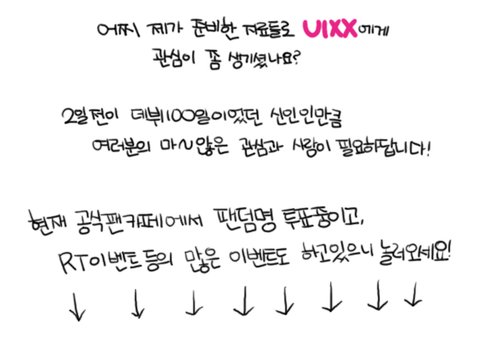 어찌 제가 준비한 자료들로 VIXX에게
관심이 좀 생기셨나요?
2일전이 데뷔100일이었던 신인인만큼
여러분의 마~않은 관심과 사랑이 필요하답니다!
현재 공식팬카페에서 팬덤명 투표중이고,
RT이벤트등의 많은 이벤트도 하고있으니 놀러와세요!